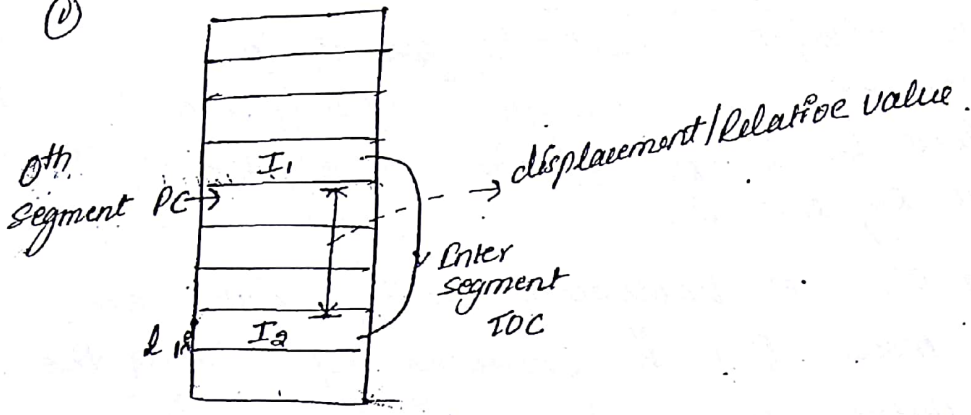 ①
I₁
0th
segment PC→
displacement/Relative value.
Inter
segment
TOC
I₂